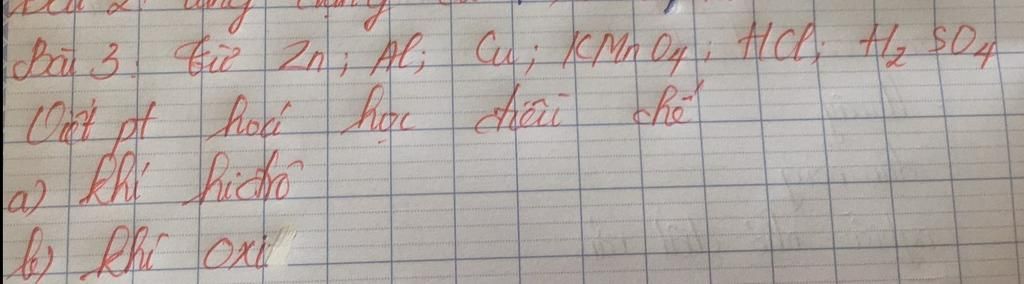 Bài 3. từ Zn; Al; Cu; KMnO4; HCl; H2SO4
Viết pt hoá học điều chế
a) khí hiđrô
b) khí oxi